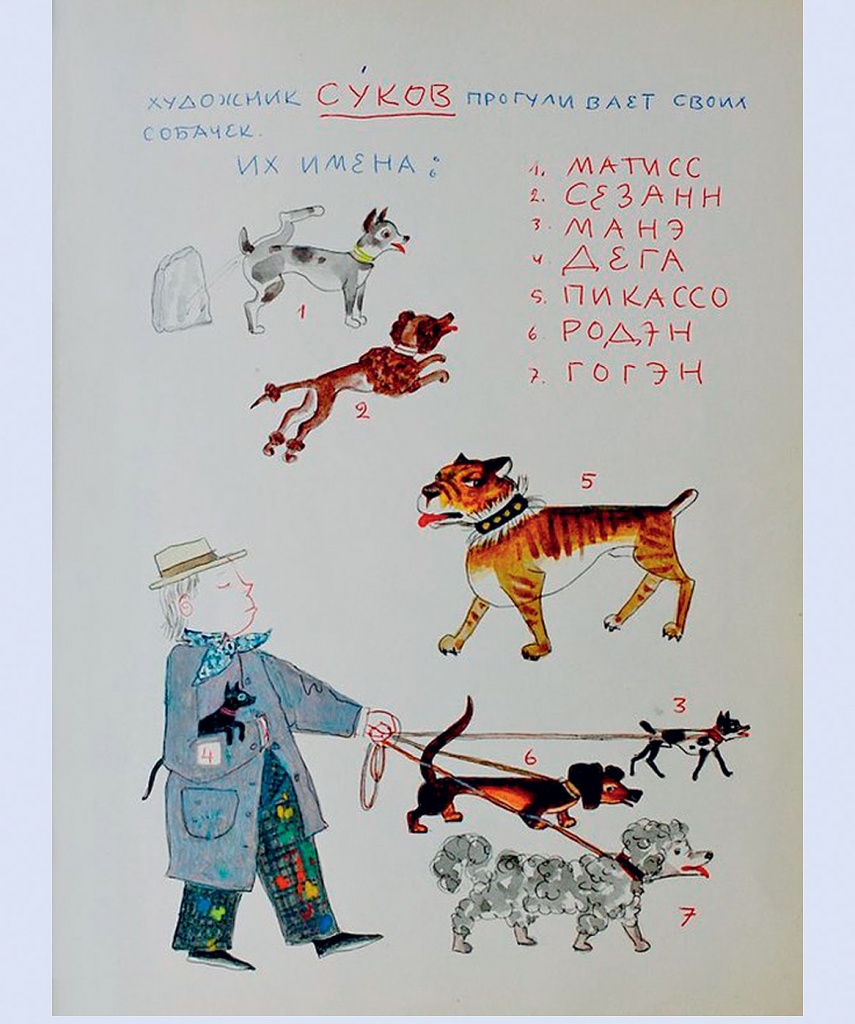 ХУДОЖНИК СУ́КОВ ПРОГУЛИВАЕТ СВОИХ
СОБАЧЕК.
ИХ ИМЕНА:
1. МАТИСС
2. СЕЗАНН
3. МАНЭ
4. ДЕГА
5. ПИКАССО
6. РОДЭН
7. ГОГЭН
1
2
5
3
4
6
7